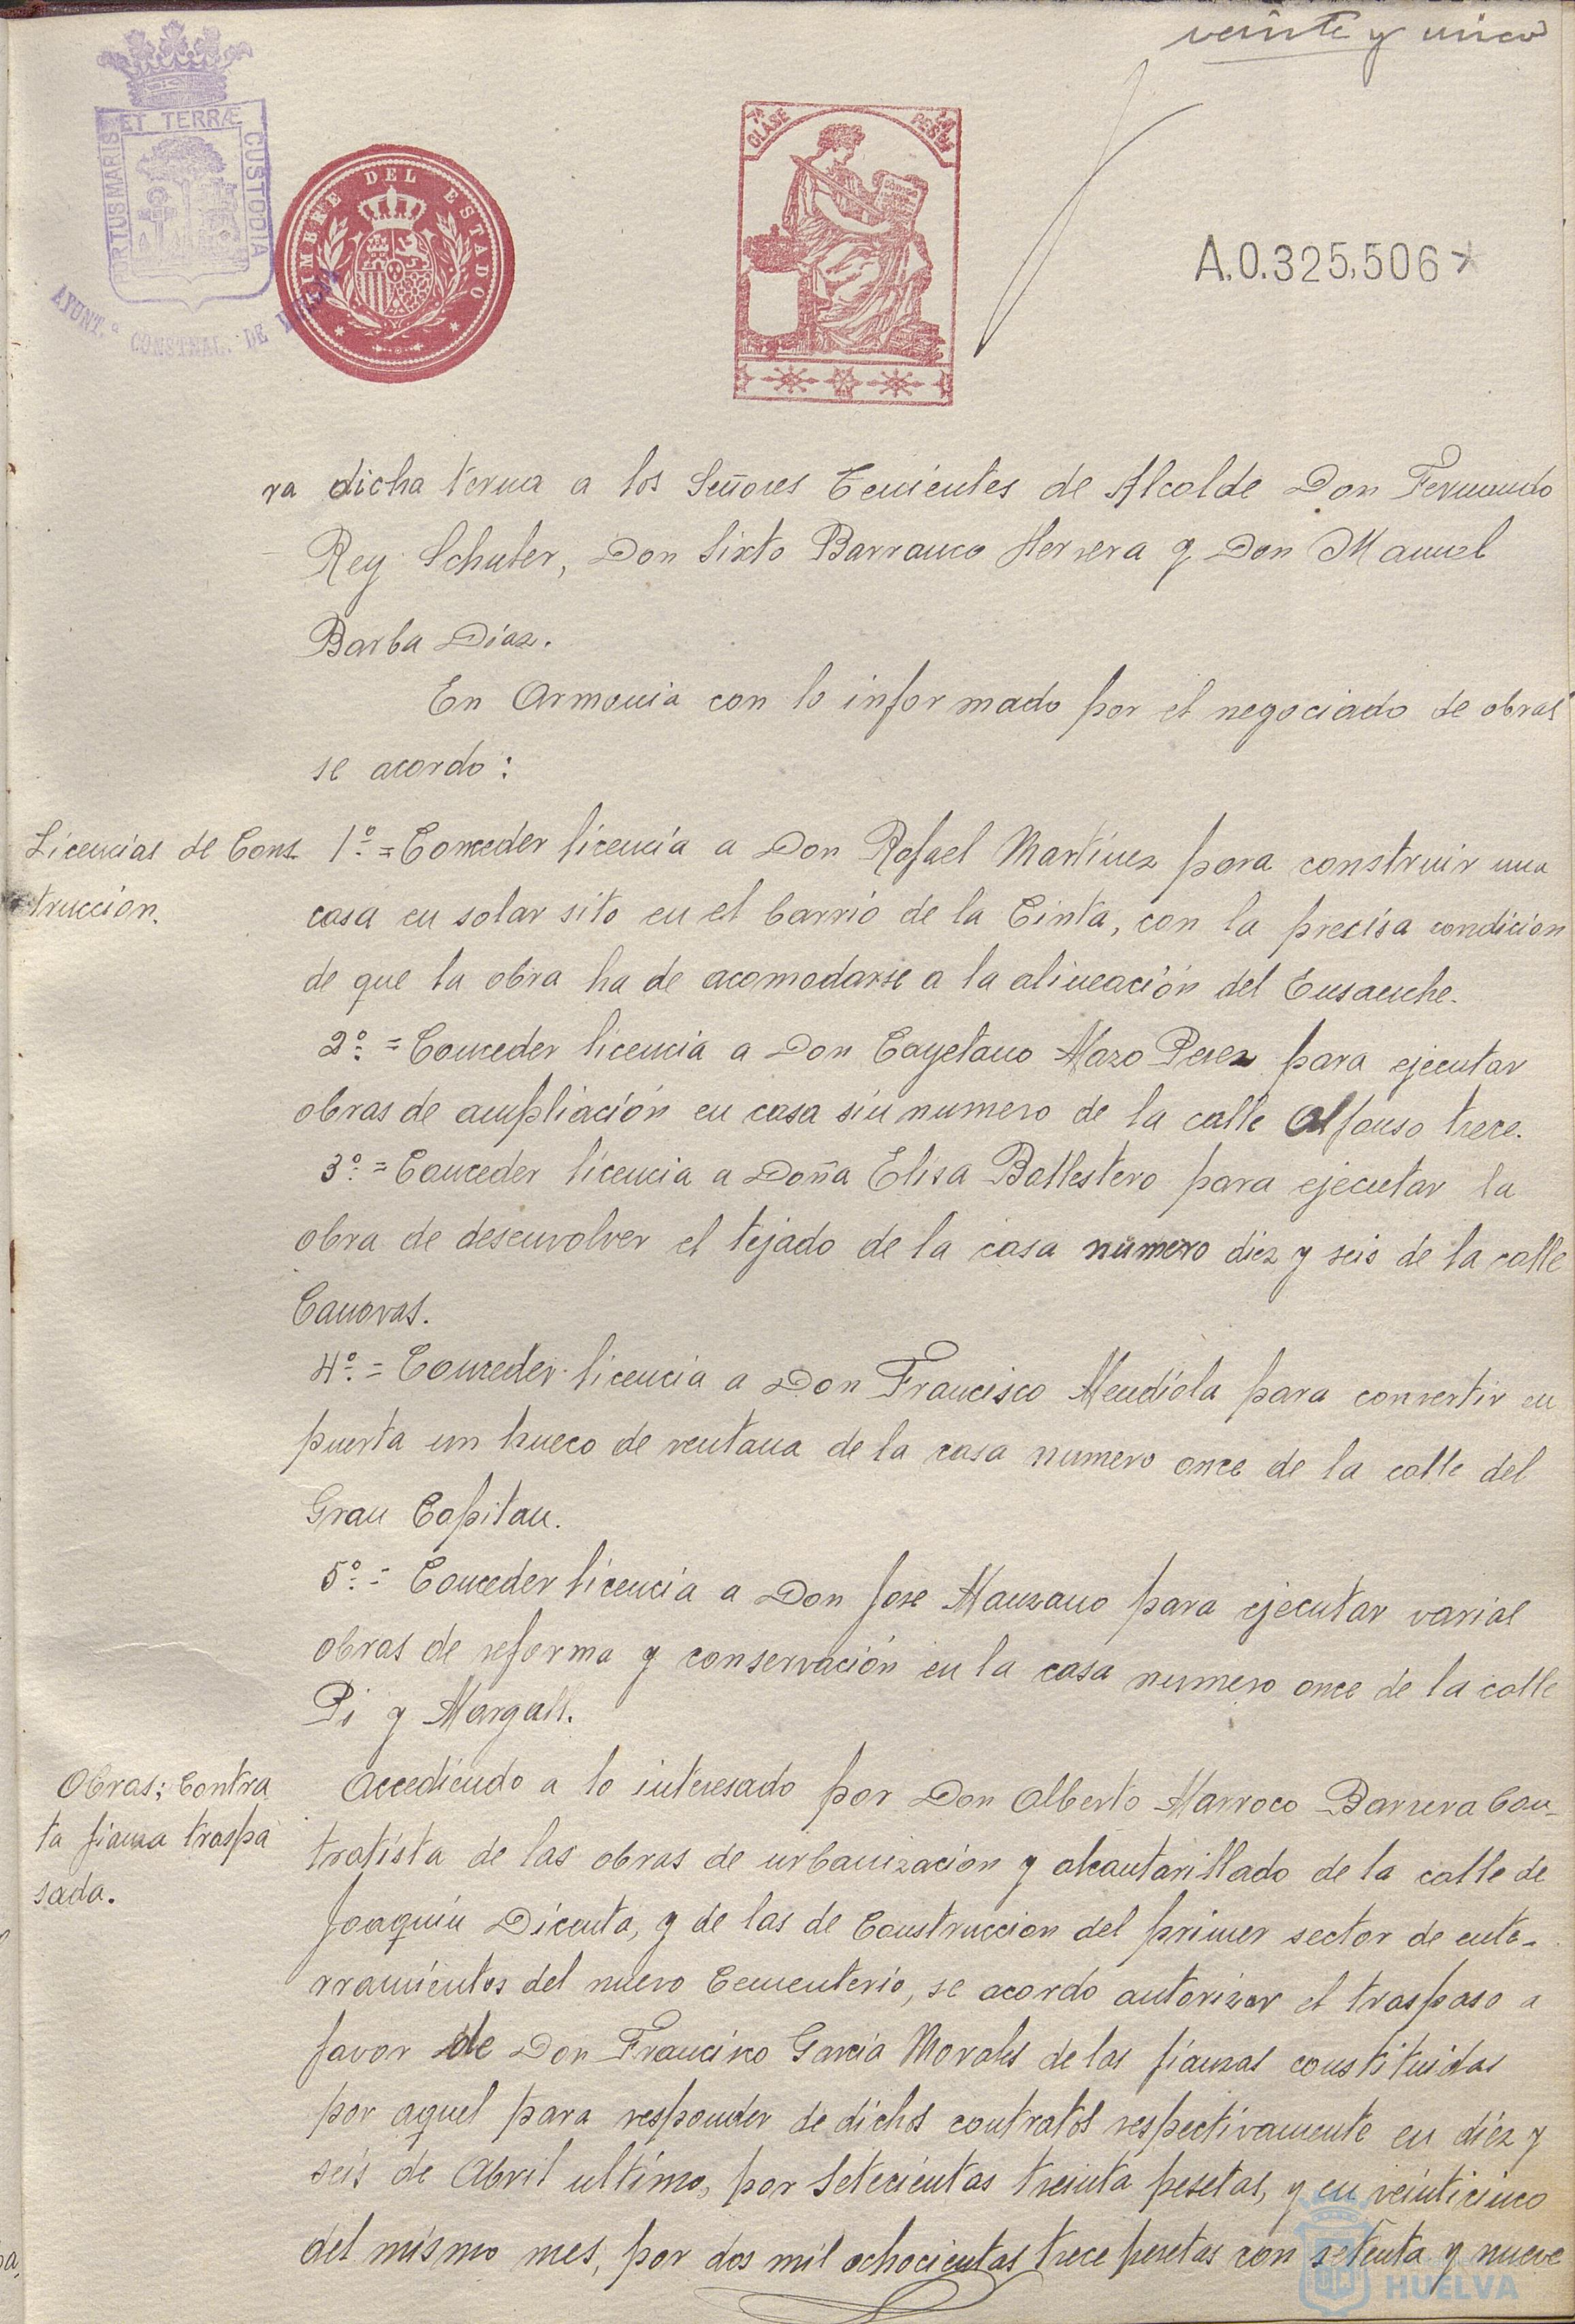 veinte y cinco
PORTUS MARIS ET TERRÆ CUSTODIA
AYUNT.º CONSTNAL. DE HUELVA
TIMBRE DEL ESTADO
7ª CLASE
PESETAS
A.0.325,506*
ra dicha terna a los Señores Tenientes de Alcalde Don Fernando
Rey Schuter, Don Sixto Barranco Herrera y Don Manuel
Barba Díaz.
En Armonia con lo informado por el negociado de obras
se acordo:
Licencias de Cons
trucción.
1º = Conceder licencia a Don Rafael Martínez para construir una
casa en solar sito en el barrio de la Cinta, con la precisa condicion
de que la obra ha de acomodarse a la alineación del Ensanche.
2º = Conceder licencia a Don Cayetano Mazo Perez para ejecutar
obras de ampliación en casa sin numero de la calle Alfonso trece.
3º = Conceder licencia a Doña Elisa Ballestero para ejecutar la
obra de desenvolver el tejado de la casa numero diez y seis de la calle
Canovas.
4º = Conceder licencia a Don Francisco Mendiola para convertir en
puerta un hueco de ventana de la casa numero once de la calle del
Gran Capitan.
5º = Conceder licencia a Don Jose Manzano para ejecutar varias
obras de reforma y conservación en la casa numero once de la calle
Pi y Margall.
Obras; Contra
ta fianza traspa
sada.
Accediendo a lo interesado por Don Alberto Marroco Barrera Con-
tratista de las obras de urbanización y alcantarillado de la calle de
Joaquín Dicenta, y de las de Construccion del primer sector de ente-
rramientos del nuevo Cementerio, se acordo autorizar el traspaso a
favor de Don Francisco García Morales de las fianzas constituidas
por aquel para responder de dichos contratos respectivamente en diez y
seis de Abril ultimo, por Setecientas treinta pesetas, y en veinticinco
del mismo mes, por dos mil ochocientas trece pesetas con setenta y nueve
HUELVA